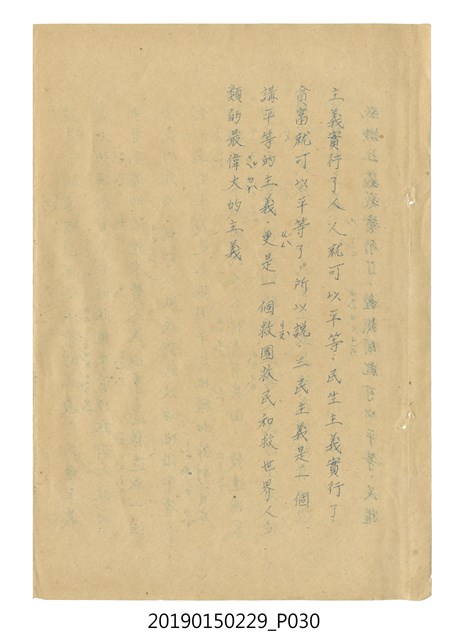 主義實行了人人就可以平等。民生主義實行了
貧富就可以平等了。所以說。三民主義是一個
講平等的主義。更是一個救國救民和救世界人
類的最偉大的主義
20190150229_P030